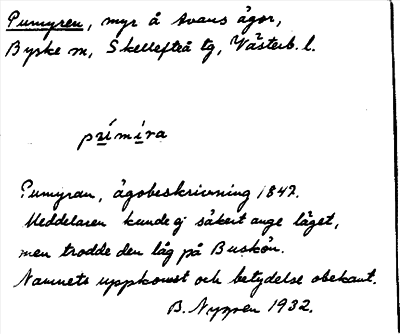 Pumyren, myr å Avans ägor,
Byske m, Skellefteå tg, Västerb. l.
Pumyran, ägobeskrivning 1842.
Meddelaren kunde ej säkert ange läget,
men trodde den låg på Buskön.
Namnets uppkomst och betydelse obekant.
B. Nygren 1932.